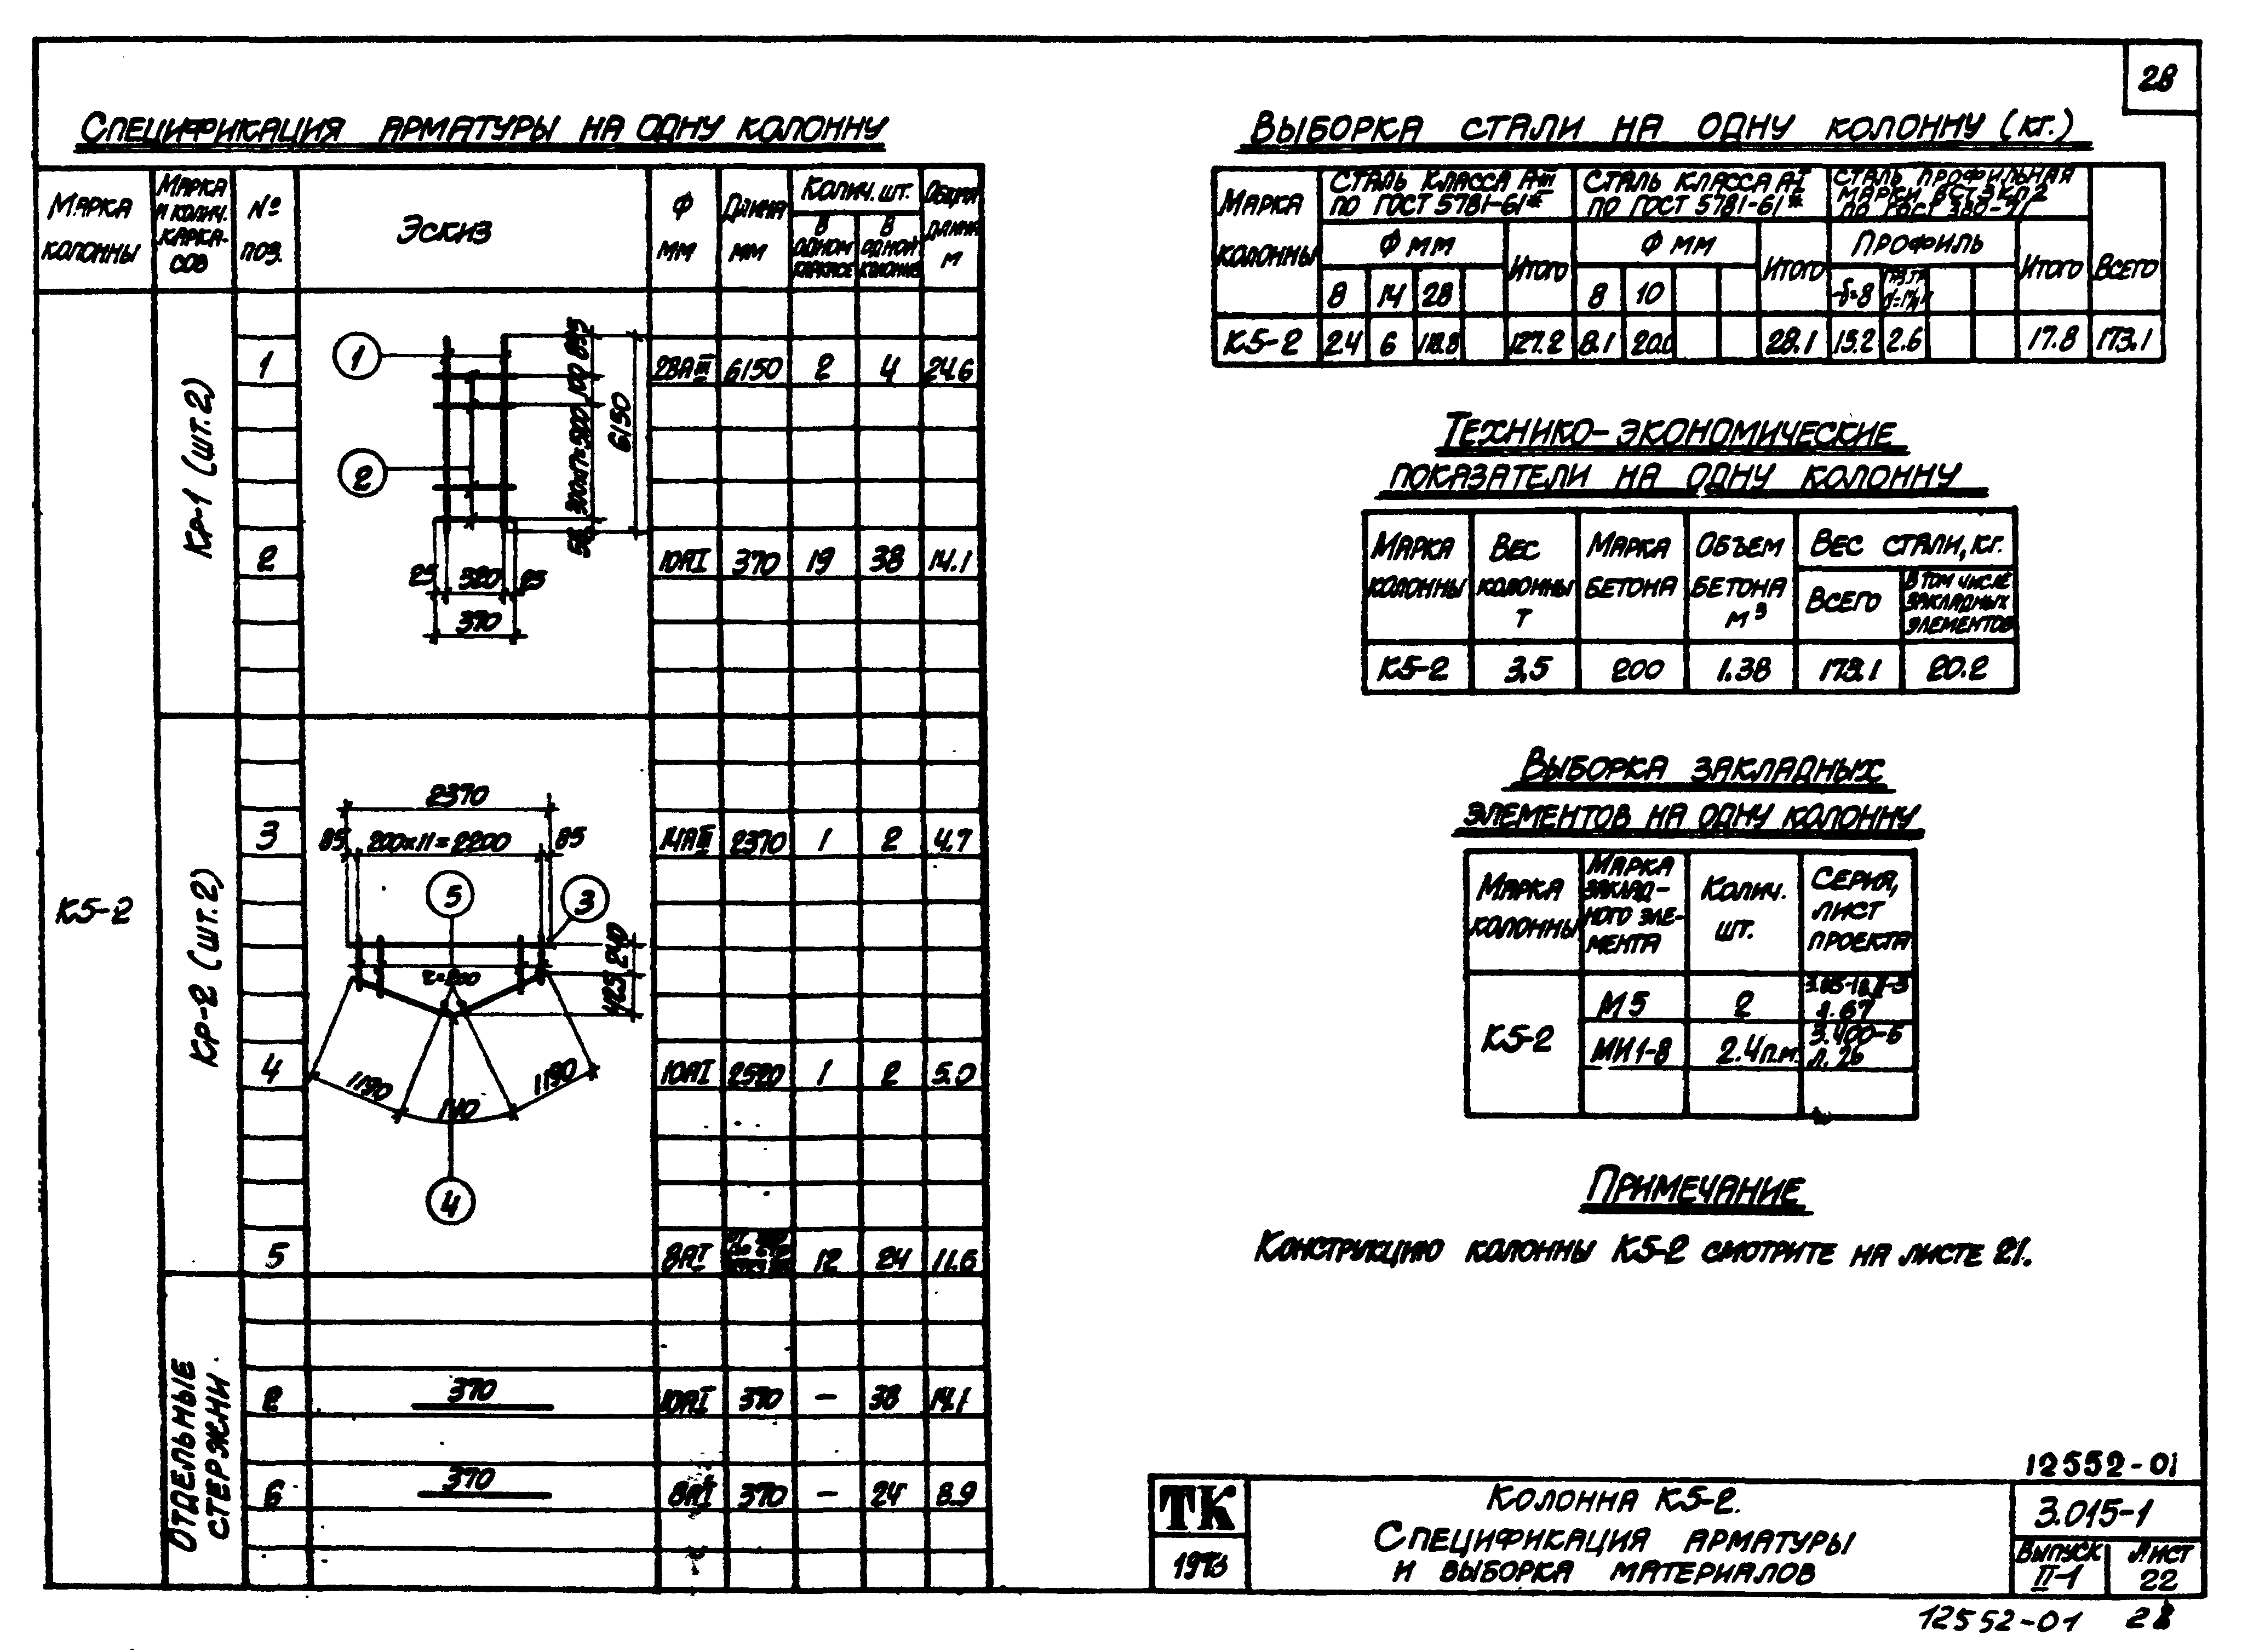 28
Спецификация арматуры на одну колонну
Марка колонны
Марка и колич. каркасов
№ поз.
Эскиз
Ф мм
Длина мм
Колич. шт.
в одном каркасе
в одной колонне
Общая длина м
К5-2
Кр-1 (шт.2)
1 28АIII 6150 2 4 24.6
2 10АI 370 19 38 14.1
1
2
85
100
6150
50
25 320 25
370
Кр-2 (шт.2)
3 14АIII 2370 1 2 4.7
4 10АI 2520 1 2 5.0
5 8АI 12 24 11.6
2370
85 200×11=2200 85
5
3
240
425
r=200
1190 140 1190
4
Отдельные стержни
2 370 10АI 370 — 38 14.1
6 370 8АI 370 — 24 8.9
Выборка стали на одну колонну (кг.)
Марка колонны
Сталь класса А-III по ГОСТ 5781-61*
Сталь класса А-I по ГОСТ 5781-61*
Сталь профильная марки ВСт3кп2 по ГОСТ 380-71
Ф мм
Итого
Ф мм
Итого
Профиль
Итого
Всего
8 14 28 8 10 -δ=8
К5-2 2.4 6 118.8 127.2 8.1 20.0 28.1 15.2 2.6 17.8 173.1
Технико-экономические
показатели на одну колонну
Марка колонны
Вес колонны т
Марка бетона
Объем бетона м3
Вес стали, кг.
Всего
В том числе закладных элементов
К5-2 3,5 200 1.38 173.1 20.2
Выборка закладных
элементов на одну колонну
Марка колонны
Марка закладного элемента
Колич. шт.
Серия, лист проекта
К5-2
М5 2 л.67
МИ1-8 2.4п.м. 3.400-6 л.26
Примечание
Конструкцию колонны К5-2 смотрите на листе 21.
12552-01
ТК
1973
Колонна К5-2.
Спецификация арматуры
и выборка материалов
3.015-1
Выпуск II-1
Лист 22
12552-01 28